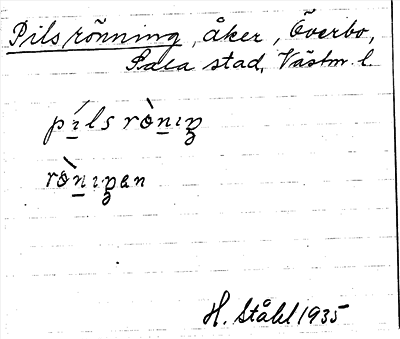 Pilsrönning, åker, Överbo,
Sala stad, Västm. l.
pí̲lsrò̲nıŋ
rò̲nıŋen
H. Ståhl 1935